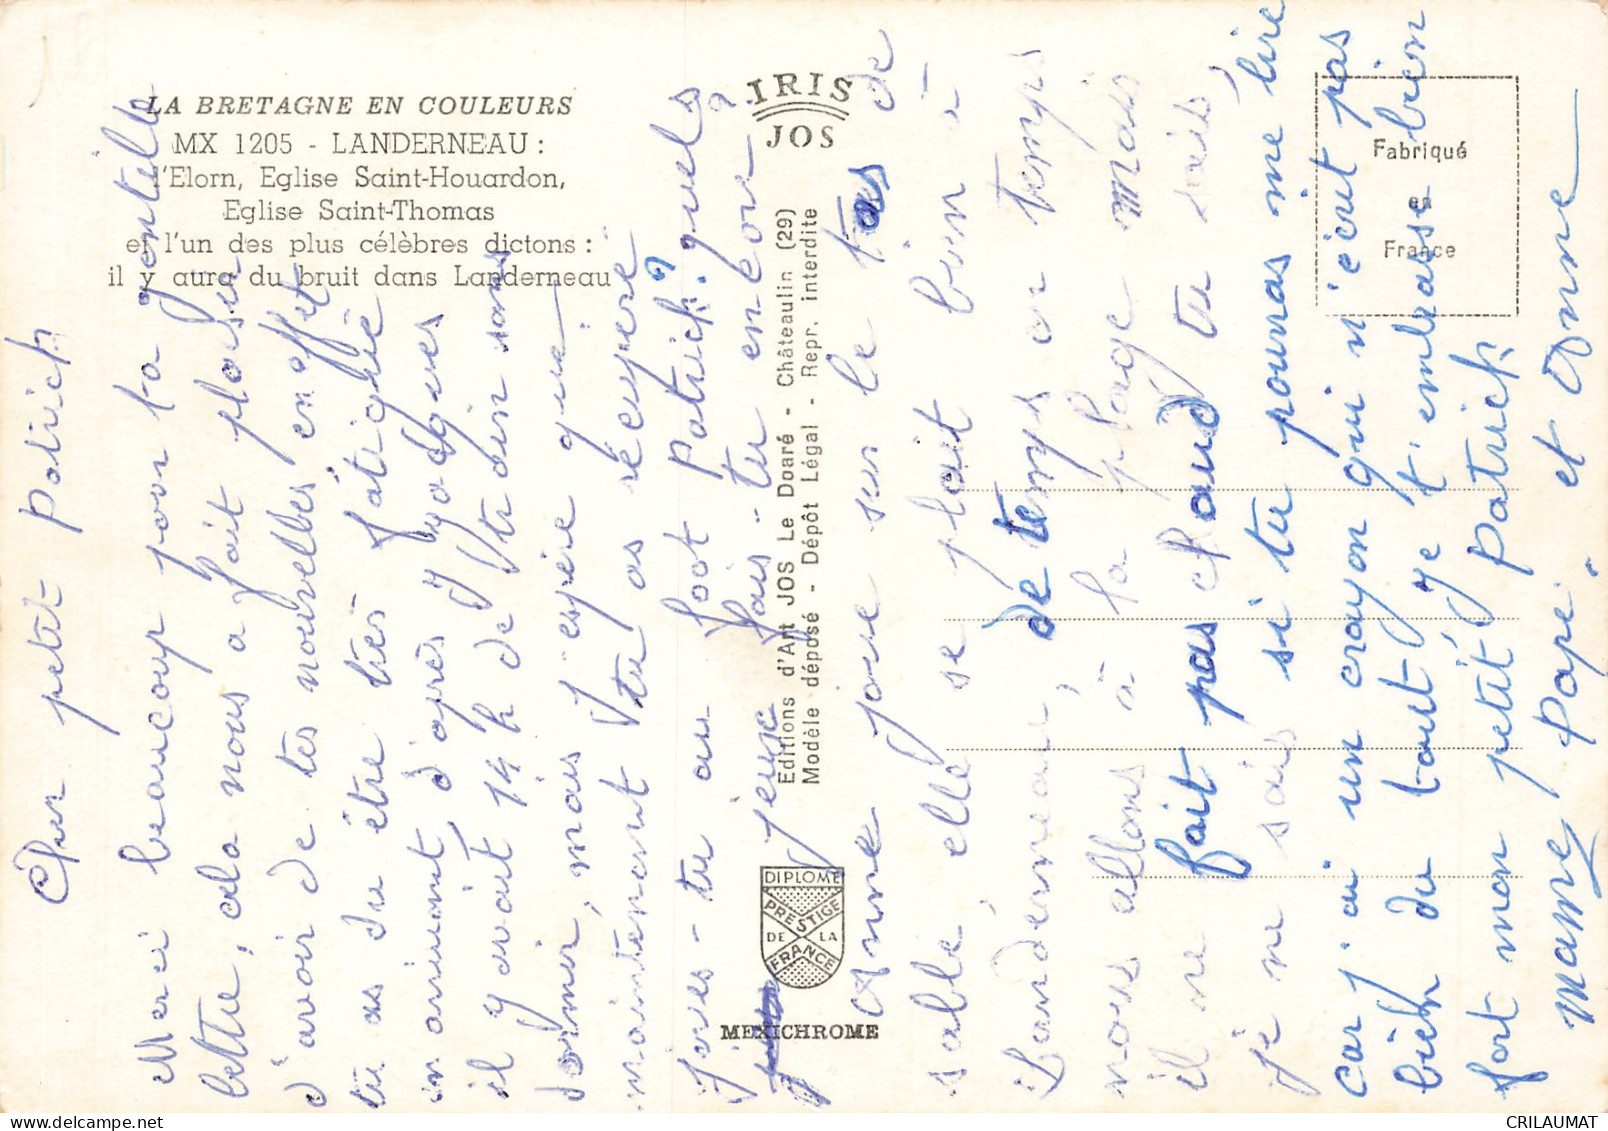 LA BRETAGNE EN COULEURS
MX 1205 - LANDERNEAU :
l'Elorn, Eglise Saint-Houardon,
Eglise Saint-Thomas
et l'un des plus célèbres dictons :
il y aura du bruit dans Landerneau
IRIS
JOS
Editions d'Art JOS Le Doaré - Châteaulin (29)
Modèle déposé - Dépôt Légal - Repr. interdite
DIPLOME
PRESTIGE
DE LA
FRANCE
MEXICHROME
Fabriqué
en
France
Cher petit Patrick
Merci beaucoup pour ta gentille
lettre, cela nous a fait plaisir
d'avoir de tes nouvelles en effet
tu as du être très fatigué
en arrivant, d'après
il y avait 14 h de train sans
dormir, mais j'espère que
maintenant tu as récupéré
joues-tu au foot Patrick ? quels
jeux fais-tu encore ?
Anne joue sur le tas de
sable, elle se plait bien à
Landerneau, de temps en temps
nous allons à la plage mais
il ne fait pas chaud tu sais,
je ne sais si tu pourras me lire
car j'ai un crayon qui n'écrit pas
bien du tout je t'embrasse bien
fort mon petit Patrick
mamie papi. et Anne
CRILAUMAT